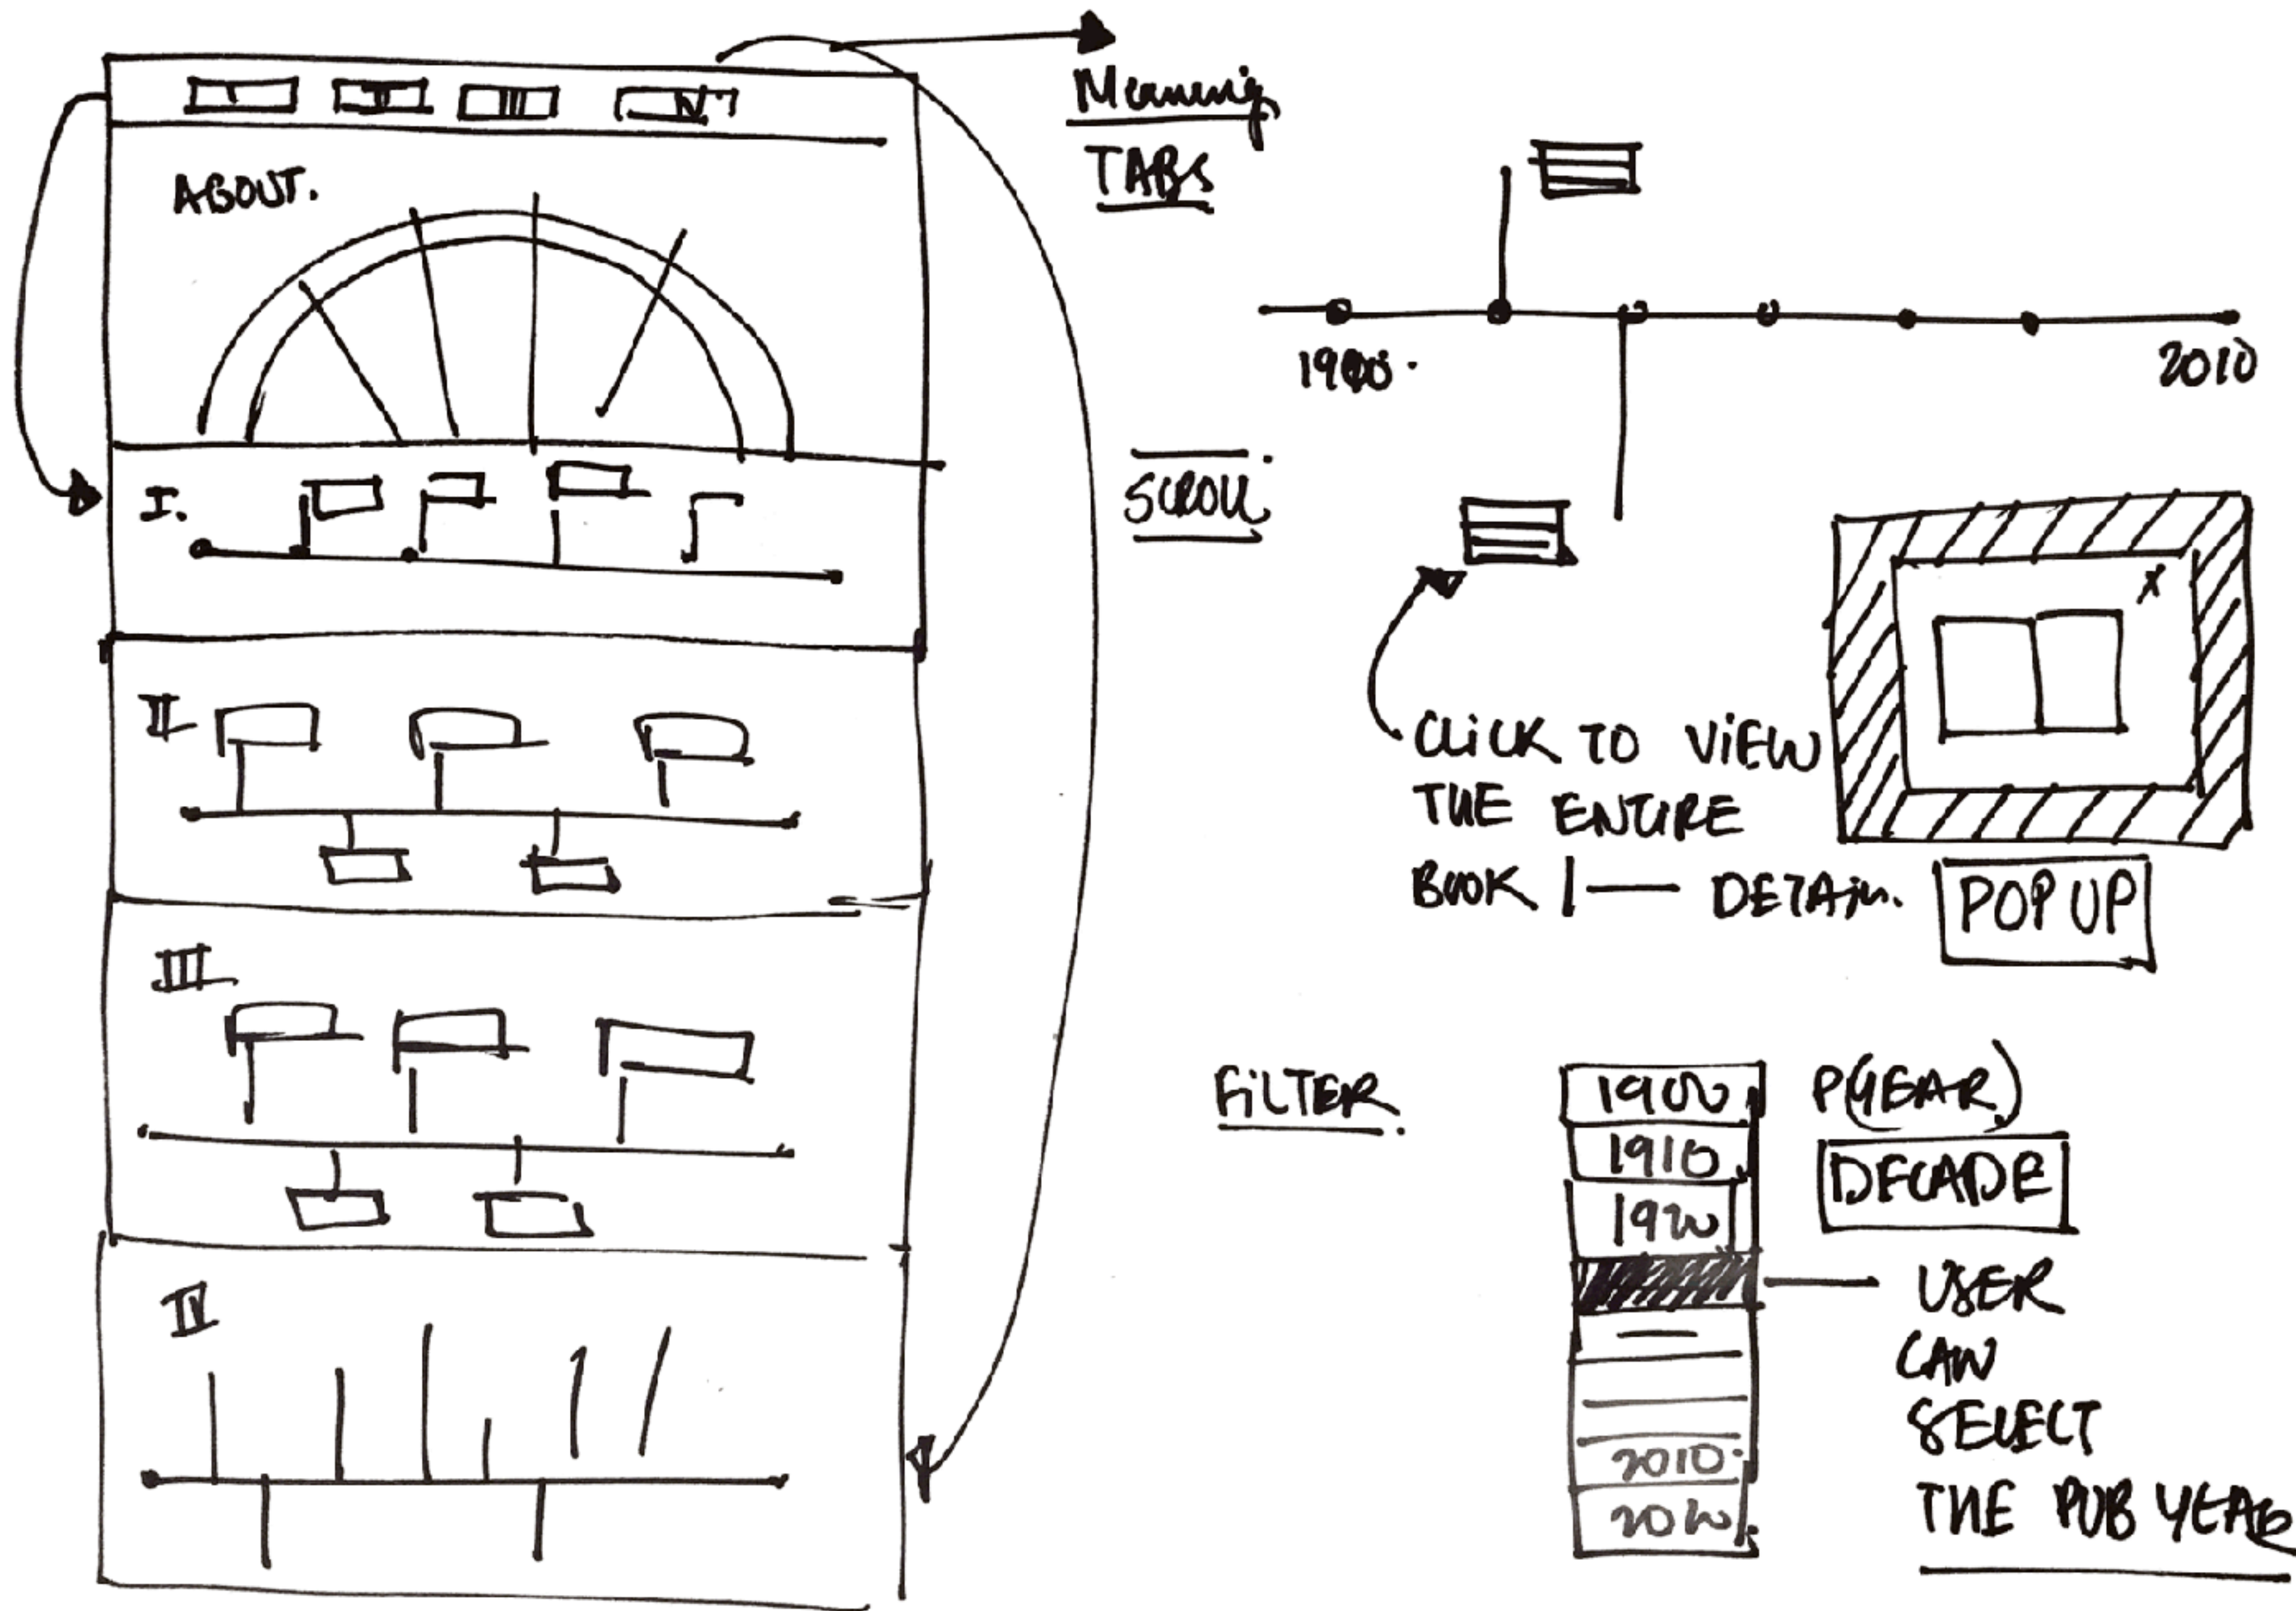 I II III IV
ABOUT.
I.
II
III
IV
TABS
1900.
2010
SCROLL
X
CLICK TO VIEW
THE ENTIRE
BOOK | — DETAIL.
POP UP
FILTER.
1900
1910
1920
2010
2020
P(YEAR)
DECADE
USER
CAN
SELECT
THE PUB YEAR